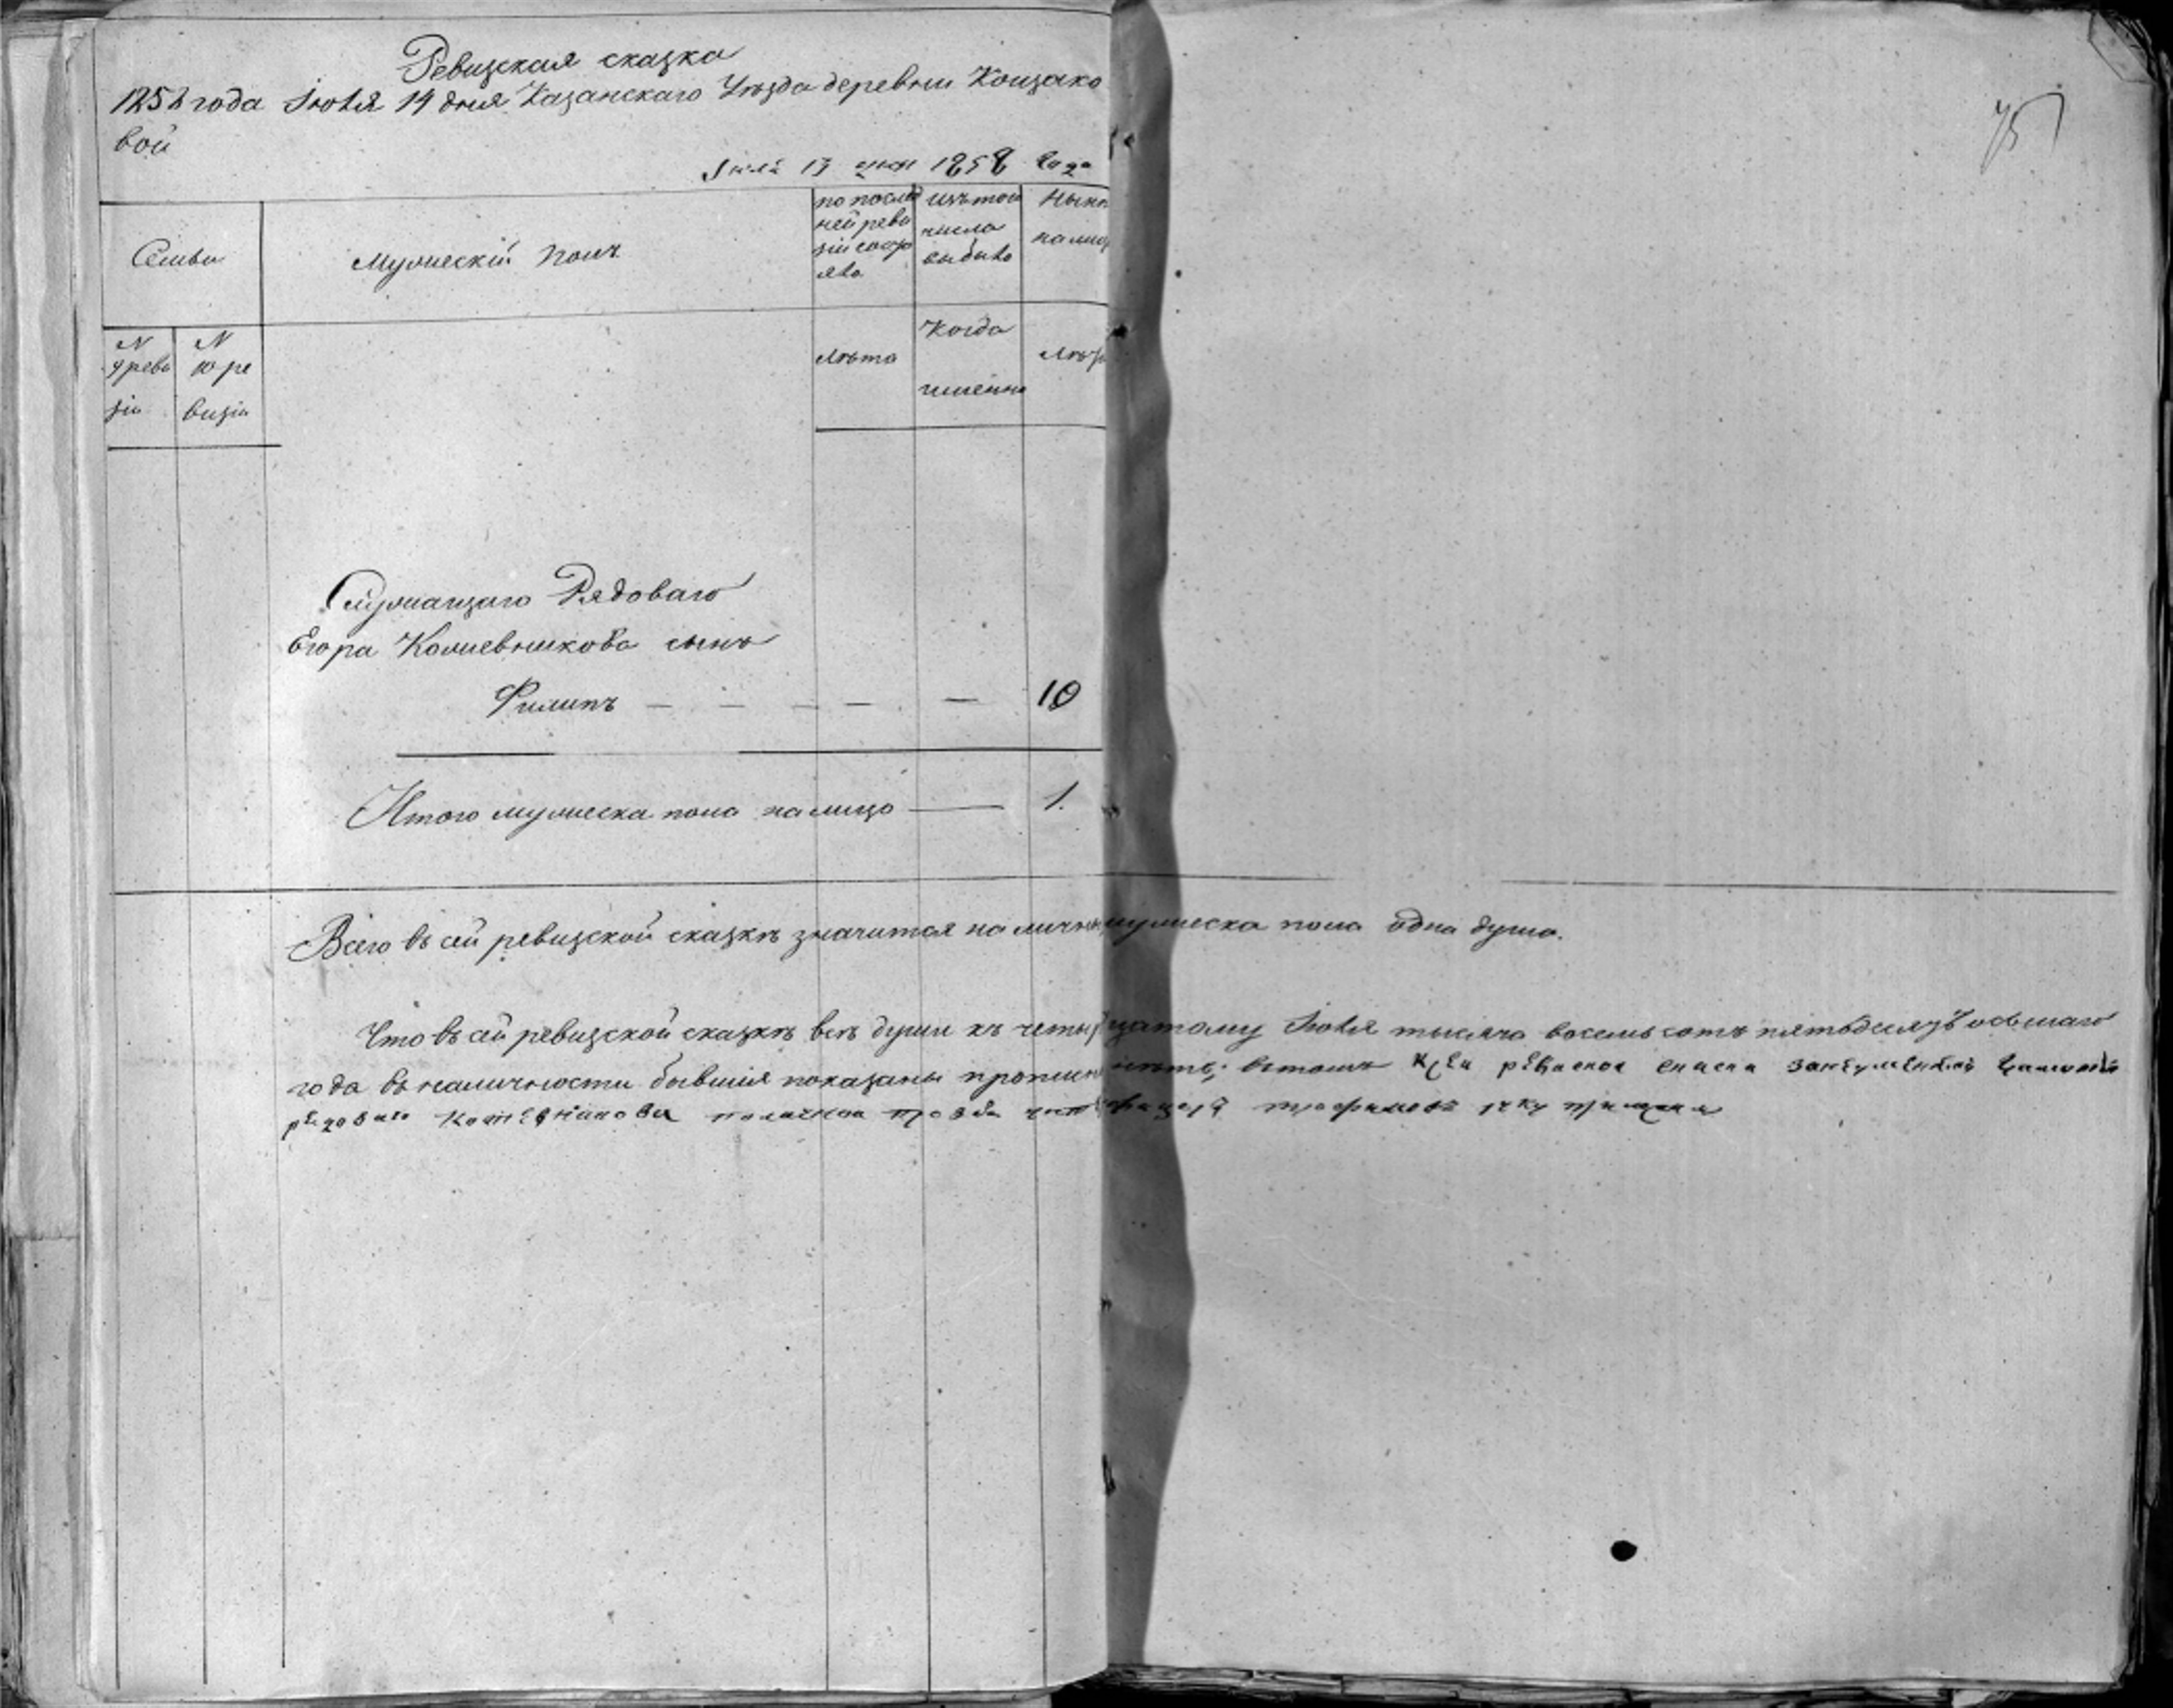 75
Ревизская сказка
1858 года Июля 14 дня Казанскаго Уѣзда деревни Кощако
вой
Июля 13 дня 1858 года
Семьи
Мужескій полъ
по послѣд
ней реви
зіи состо
яло
изъ того
числа
выбыло
Нынѣ
налиц
N
9 реви
зіи
N
10 ре
визіи
Лѣта
Когда
именно
Лѣта
Служащаго Рядоваго
Егора Кожевникова сынъ
Филипъ — — — — — 10
Итого мужеска пола налицо — 1.
Всего въ сей ревизской сказкѣ значится наличн мужеска пола одна душа.
Что въ сей ревизской сказкѣ всѣ души къ четыр цатому Июля тысяча восемьсотъ пятьдесятъ осьмаго
года въ наличности бывшія показаны и нѣтъ; въ томъ